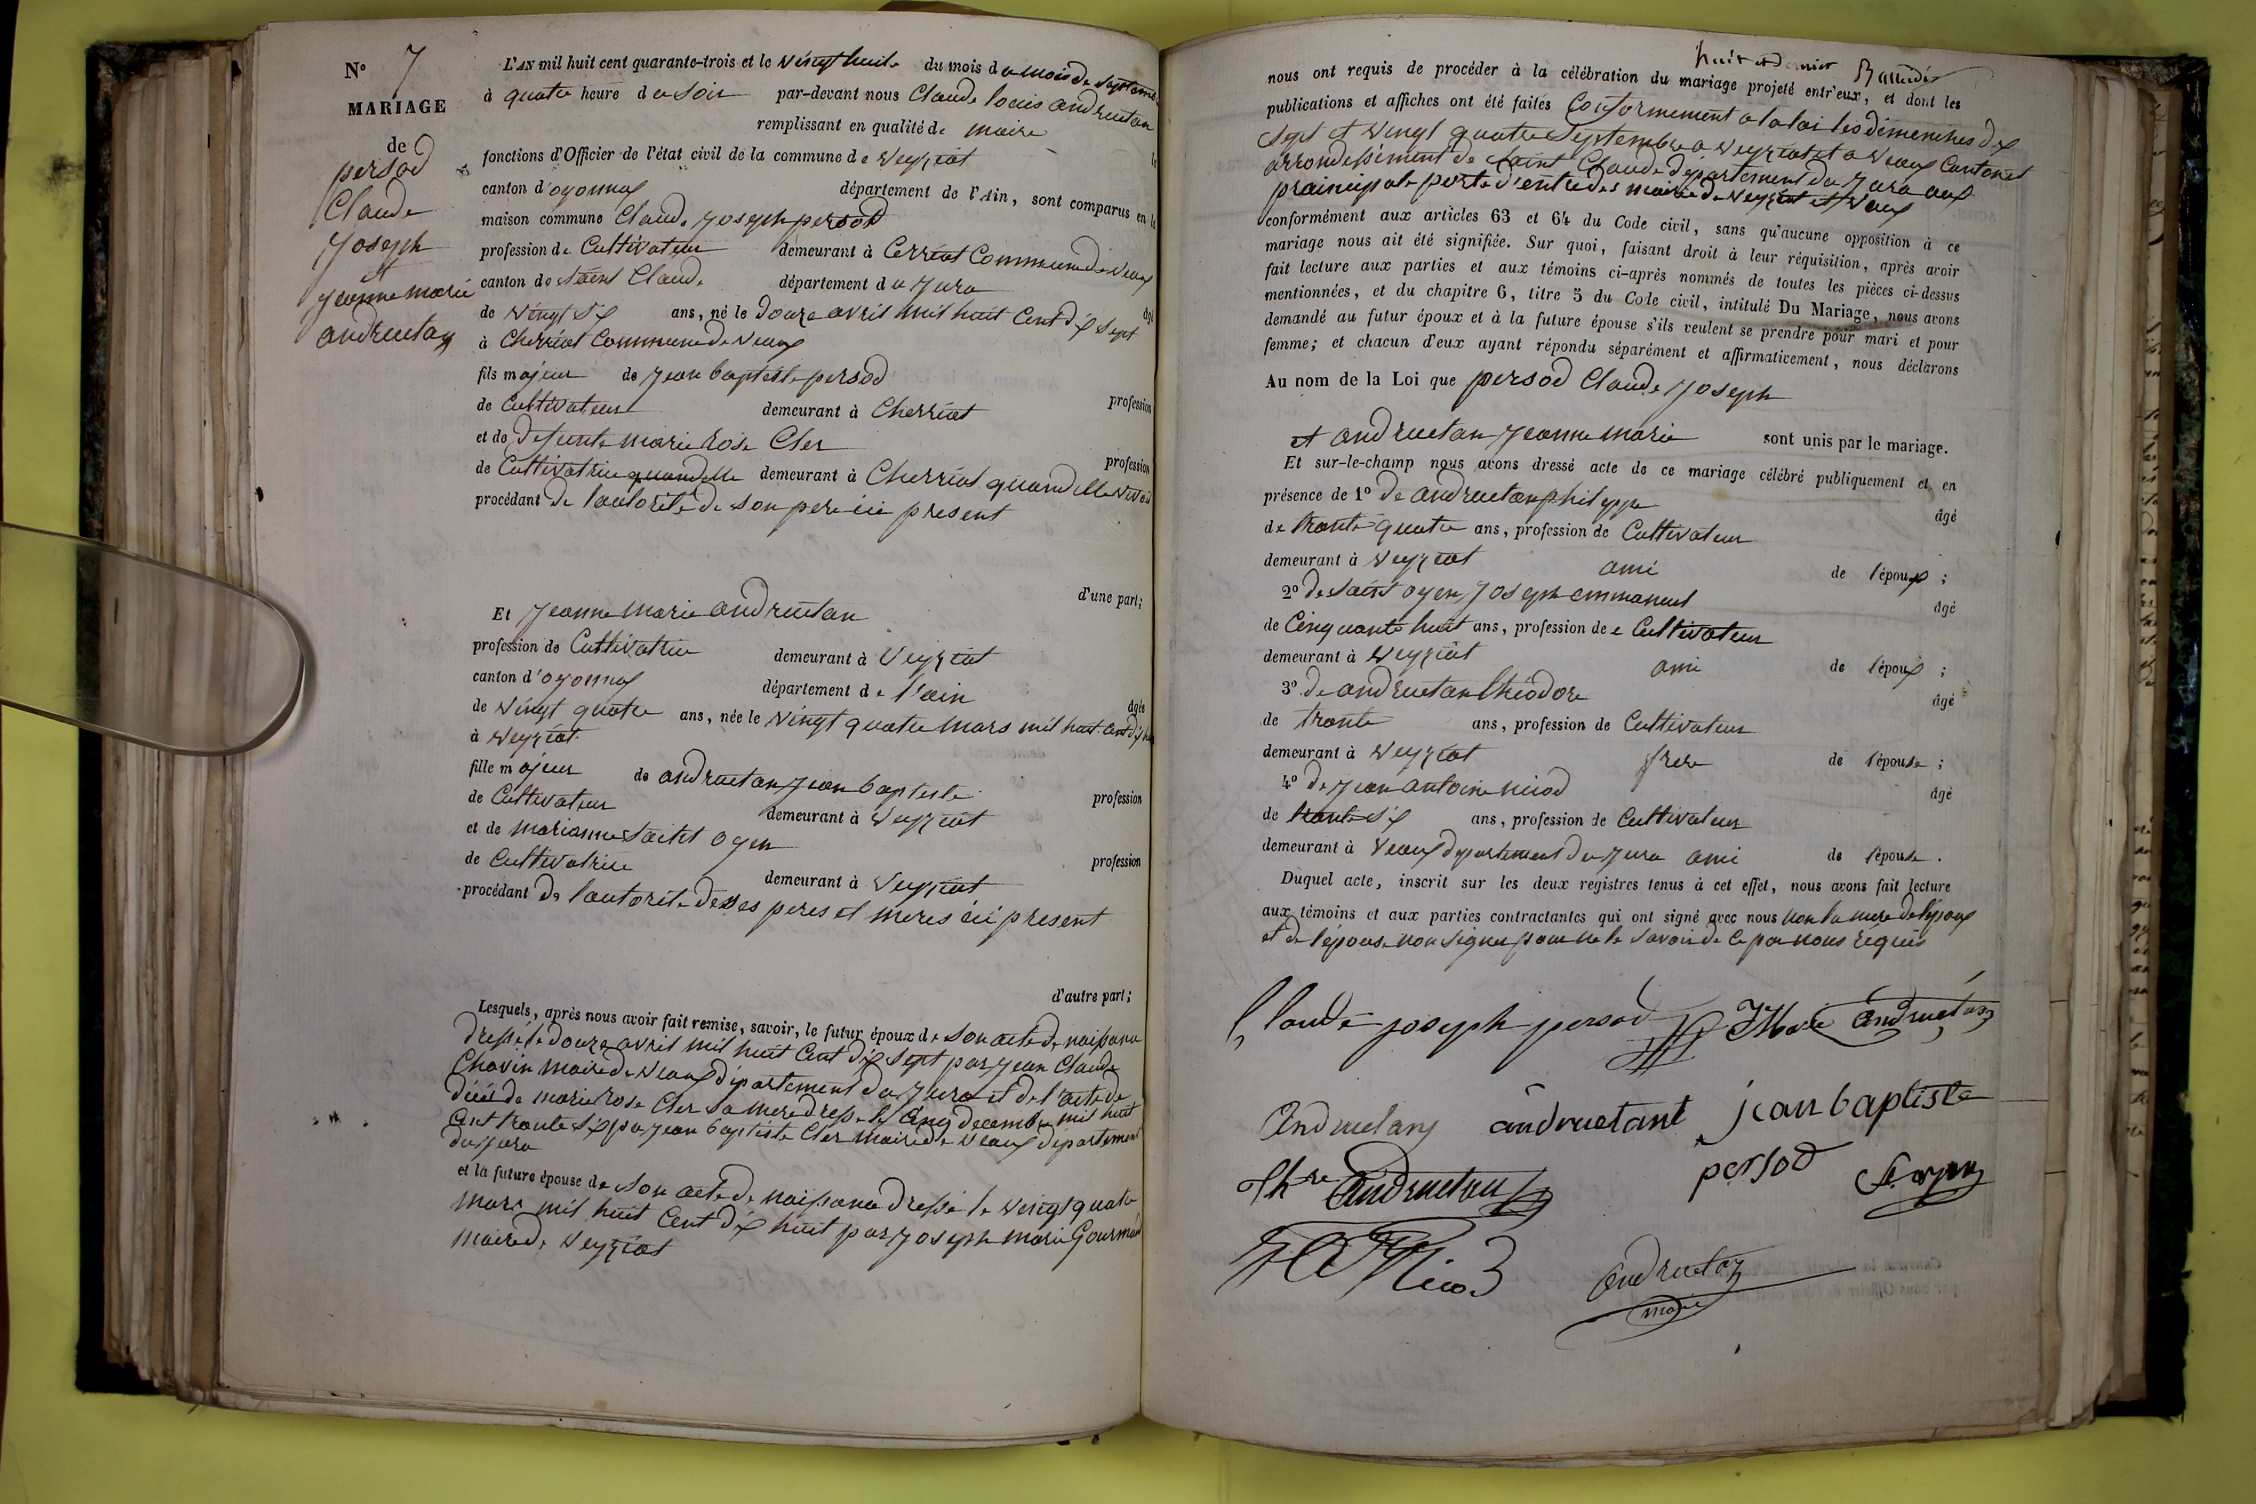 N° 7
MARIAGE
de
persod
Claude
Joseph
et
jeanne marie
andruetan
L'AN mil huit cent quarante-trois et le vingt huit du mois d u mois de septembre
à quatre heure d u soir par-devant nous Claude louis andruetan
remplissant en qualité de maire
fonctions d'Officier de l'état civil de la commune de veyziat
canton d'oyonnax département de l'Ain, sont comparus en la
maison commune Claude joseph persod
profession de Cultivateur demeurant à Cerriat Commune de veaux
canton de Saint Claude département d u jura
de vingt six ans, né le douze avril mil huit Cent dix sept
à Cherriat Commune de veaux
fils majeur de jean baptiste persod
profession
de Cultivateur demeurant à Cherriat
et de defunte marie rose Cler
profession
de Cultivatrice quandelle demeurant à Cherriat quand elle vivoit
procédant de l'autorité de son pere ici present
d'une part;
Et jeanne marie andruetan
profession de Cultivatrice demeurant à Veyziat
canton d'oyonnax département de l'ain
âgée
de vingt quatre ans, née le vingt quatre mars mil huit Cent dix huit
à veyziat
fille majeur de andruetan jean baptiste
profession
de Cultivateur demeurant à veyziat
et de marianne Saint oyen
profession
de Cultivatrice demeurant à Veyziat
procédant de l'autorité de ses peres et meres ici present
d'autre part;
Lesquels, après nous avoir fait remise, savoir, le futur époux de son acte de naissance
dressé le douze avril mil huit Cent dix sept par jean Claude
Chavin maire de veaux département du jura et de l'acte de
décé de marie rose Cler sa mere dressé le Cinq decembre mil huit
Cent trante six par jean baptiste Cler maire de veaux département
du jura
et la future épouse de son acte de naissance dressé le vingt quatre
mars mil huit Cent dix huit par joseph marie Gourmand
maire de veyziat
nous ont requis de procéder à la célébration du mariage projeté entr'eux, et dont les
publications et affiches ont été faites Conformement a la loi les dimenches dix
sept et vingt quatre Septembre a veyziat et a veaux Canton et
arrondissement de Saint Claude département du jura aux
prainsipale porte d'entré des mairie de veyziat et veaux
conformément aux articles 63 et 64 du Code civil, sans qu'aucune opposition à ce
mariage nous ait été signifiée. Sur quoi, faisant droit à leur réquisition, après avoir
fait lecture aux parties et aux témoins ci-après nommés de toutes les pièces ci-dessus
mentionnées, et du chapitre 6, titre 5 du Code civil, intitulé Du Mariage, nous avons
demandé au futur époux et à la future épouse s'ils veulent se prendre pour mari et pour
femme; et chacun d'eux ayant répondu séparément et affirmativement, nous déclarons
Au nom de la Loi que persod Claude joseph
et andruetan jeanne marie sont unis par le mariage.
Et sur-le-champ nous avons dressé acte de ce mariage célébré publiquement et en
présence de 1° de andruetan philippe
âgé
de trante quatre ans, profession de Cultivateur
demeurant à veyziat ami de l'époux ;
2° de saint oyen joseph emmanuel
âgé
de Cinquante huit ans, profession de Cultivateur
demeurant à veyziat ami de l'époux ;
3° de andruetan théodore
âgé
de trante ans, profession de Cultivateur
demeurant à veyziat frere de l'épouse ;
4° de jean antoine nicod
âgé
de trante six ans, profession de Cultivateur
demeurant à Veaux département du jura ami de l'épouse .
Duquel acte, inscrit sur les deux registres tenus à cet effet, nous avons fait lecture
aux témoins et aux parties contractantes qui ont signé avec nous non la mere de l'époux
et de l'épouse non signer pour ne le savoir de ce par nous requis
Claude joseph persod J Marie andruetan
andruetan andruetant jean baptiste
persod
Thre andruetan St oyen
JA Nicod
andruetan
maire